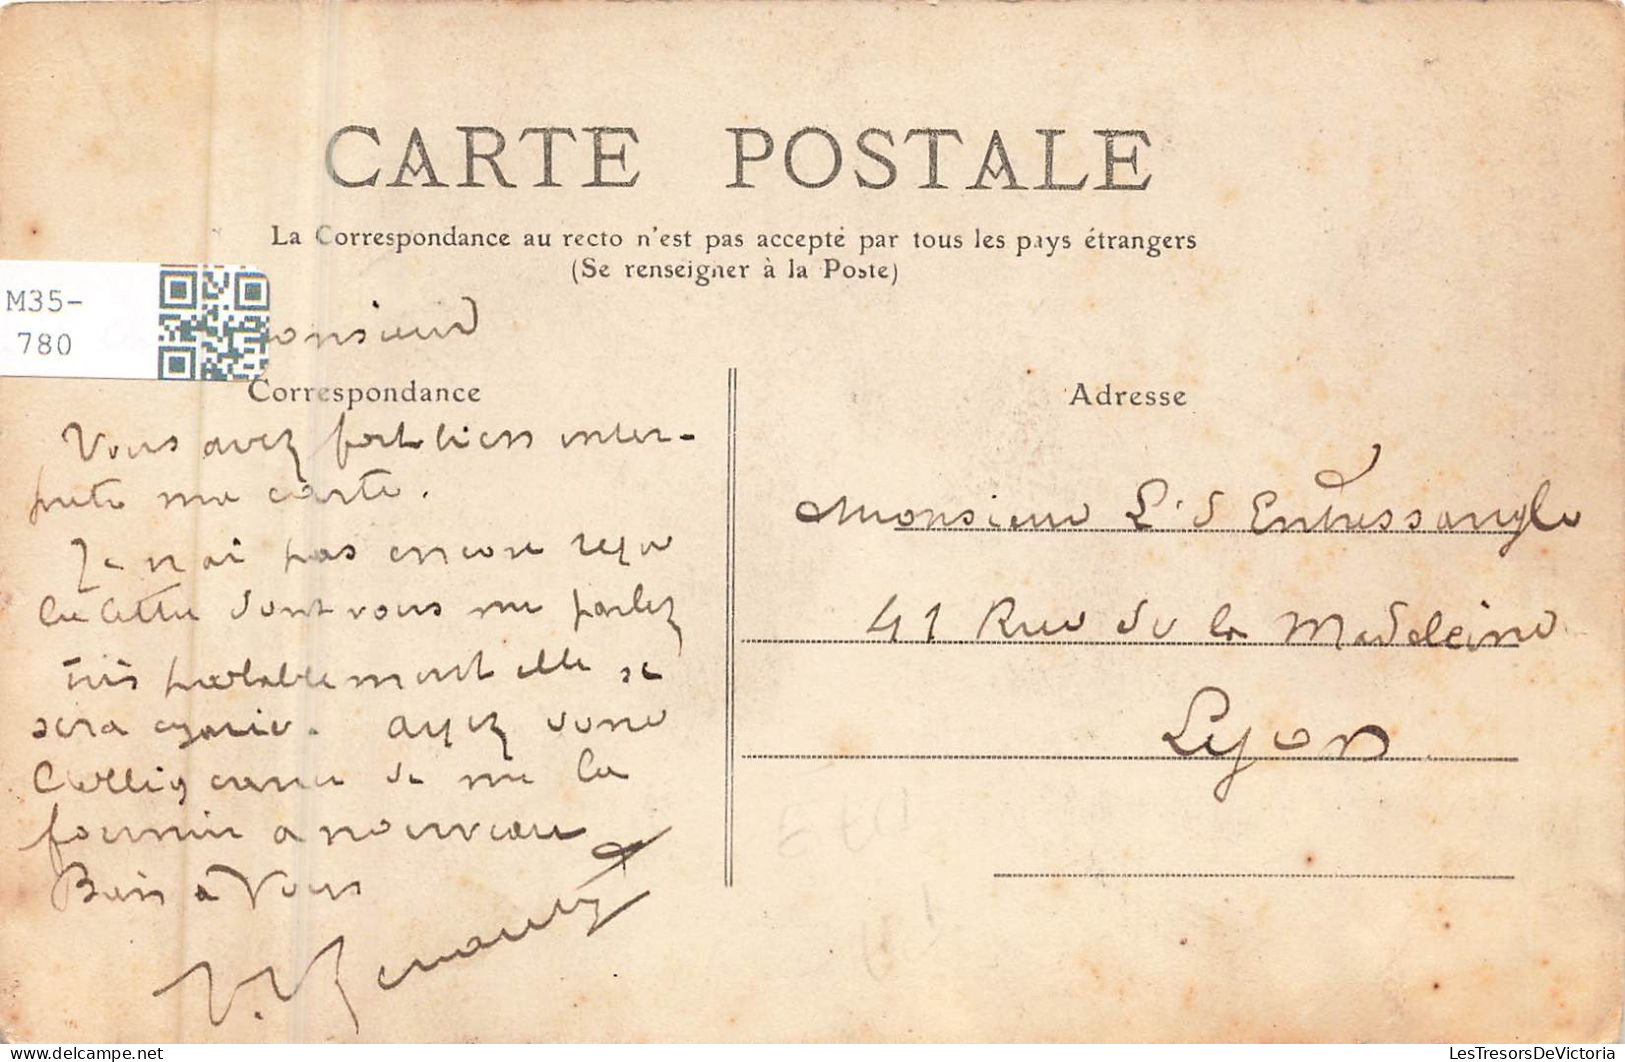 CARTE POSTALE
La Correspondance au recto n'est pas accepté par tous les pays étrangers
(Se renseigner à la Poste)
M35-
780
onsieur
Correspondance
Vous avez fort bien inter-
prété ma carte.
Je n ai pas encore reçu
la lettre dont vous me parlez
très probablement elle se
sera égarée. Ayez donc
l'obligeance de me la
fournir a nouveau
Bien à Vous
Adresse
Monsieur L. d Entressangle
41 Rue de la Madeleine
Lyon
LesTresorsDeVictoria
delcampe.net